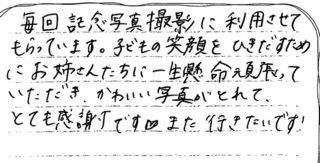 毎回記念写真撮影に利用させて
もらっています。子どもの笑顔をひきだすため
にお姉さんたちに一生懸命頑張って
いただき、かわいい写真がとれて、
とても感謝です♡また行きたいです!